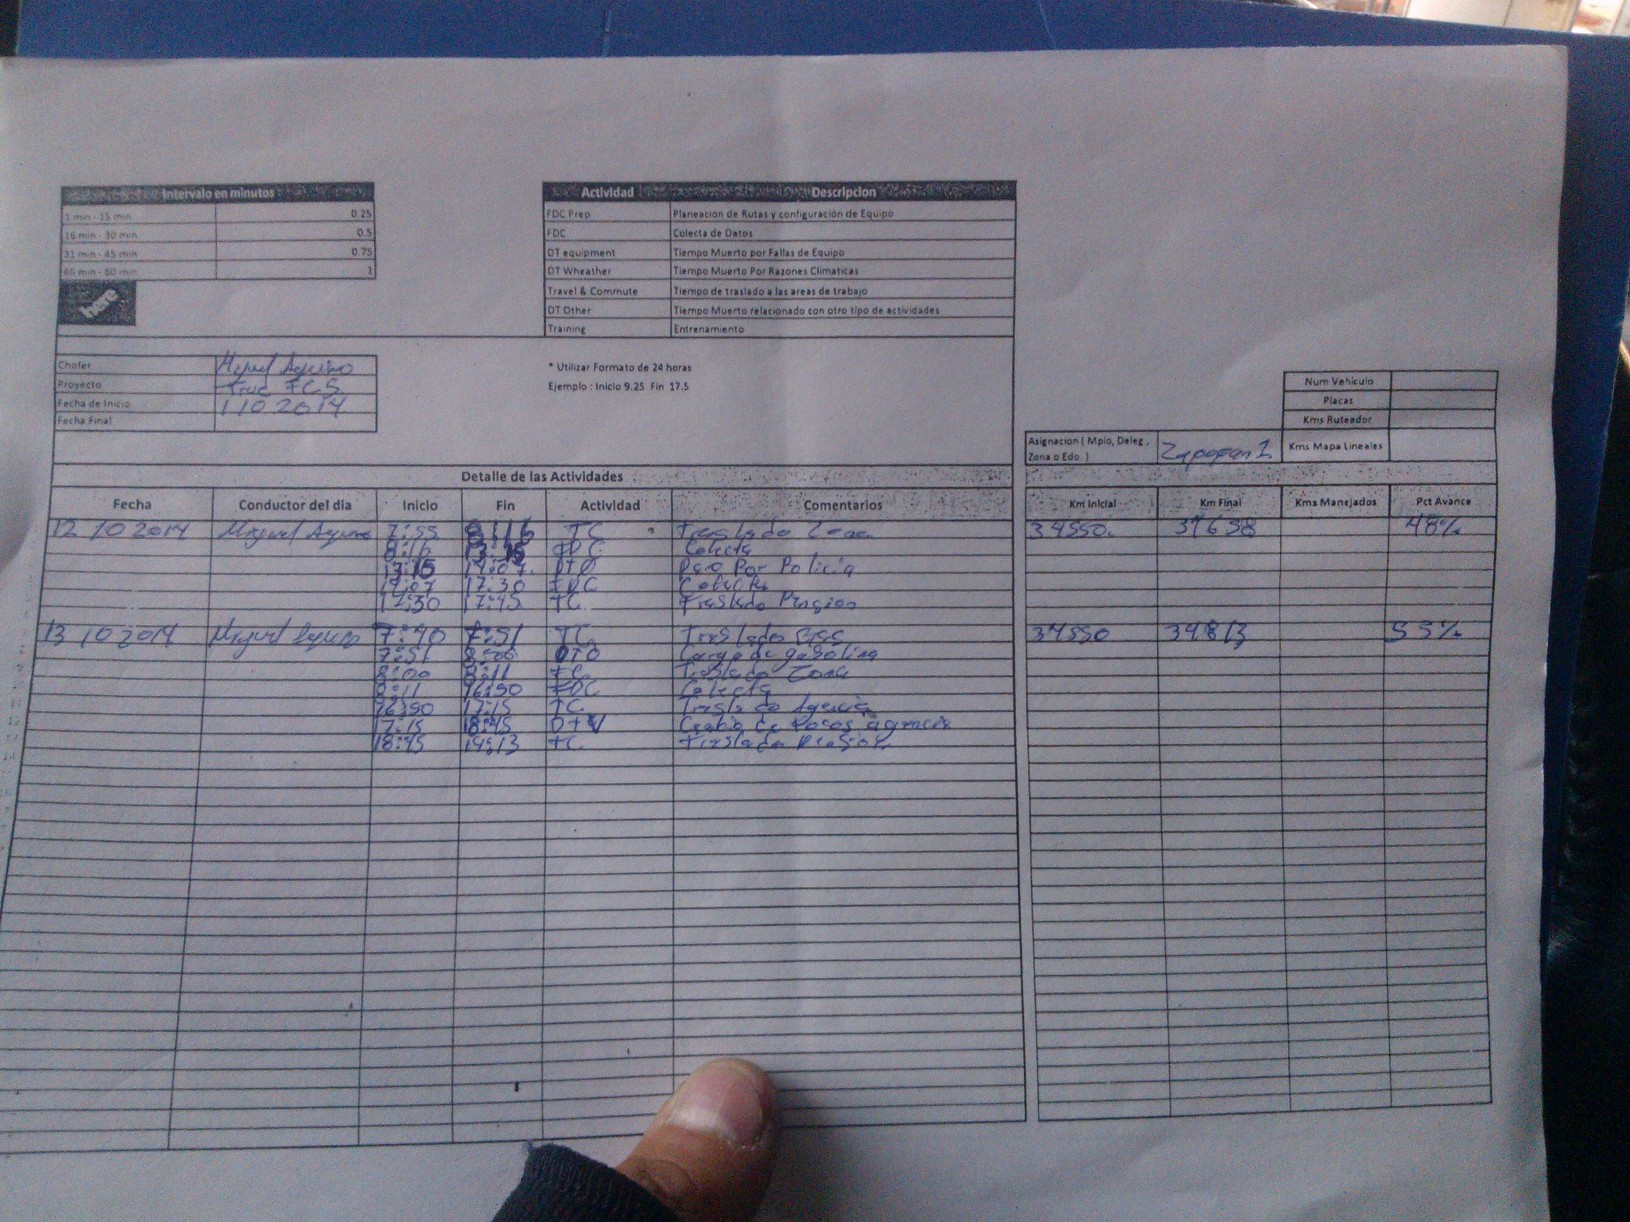 Intervalo en minutos
1 min - 15 min 0.25
16 min - 30 min 0.5
31 min - 45 min 0.75
46 min - 60 min 1
here
Actividad Descripcion
FDC Prep Planeacion de Rutas y configuración de Equipo
FDC Colecta de Datos
DT equipment Tiempo Muerto por Fallas de Equipo
DT Wheather Tiempo Muerto Por Razones Climaticas
Travel & Commute Tiempo de traslado a las areas de trabajo
DT Other Tiempo Muerto relacionado con otro tipo de actividades
Training Entrenamiento
Chofer Miguel Aquino
Proyecto True FCS
Fecha de Inicio 1 10 2014
Fecha Final
* Utilizar Formato de 24 horas
Ejemplo : Inicio 9.25 Fin 17.5
Num Vehículo
Placas
Kms Ruteador
Kms Mapa Lineales
Asignacion ( Mpio, Deleg, Zapopan 1
Zona o Edo. )
Detalle de las Actividades
Fecha Conductor del dia Inicio Fin Actividad Comentarios Km Inicial Km Final Kms Manejados Pct Avance
12 10 2014 Miguel Aquino 7:55 8:16 TC Traslado Zona 34550 48%
8:16 FDC Colecta
13:15 14:07 DTO Paro Por Policia
14:07 17:30 FDC Colecta
17:30 17:45 TC Traslado Pension
13 10 2014 Miguel Aquino 7:40 7:51 TC Traslado 34550 34813 55%
7:51 8:00 DTO Carga de gasolina
8:00 8:11 TC Traslado Zona
8:11 16:50 FDC Colecta
16:50 17:15 TC Traslado Agencia
17:15 18:45 DTV Cambio de agencia
18:45 19:13 TC Traslado Pension